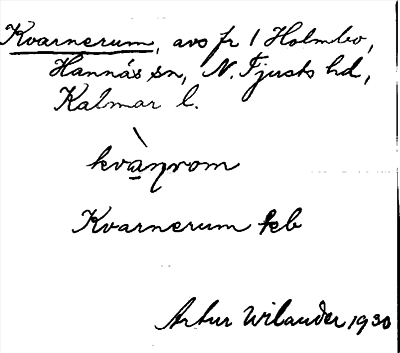 Kvarnerum, avs fr 1 Holmbo,
Hannäs sn, N. Tjusts hd,
Kalmar l.
kvàɳrom
Kvarnerum ekb
Artur Wilander 1930